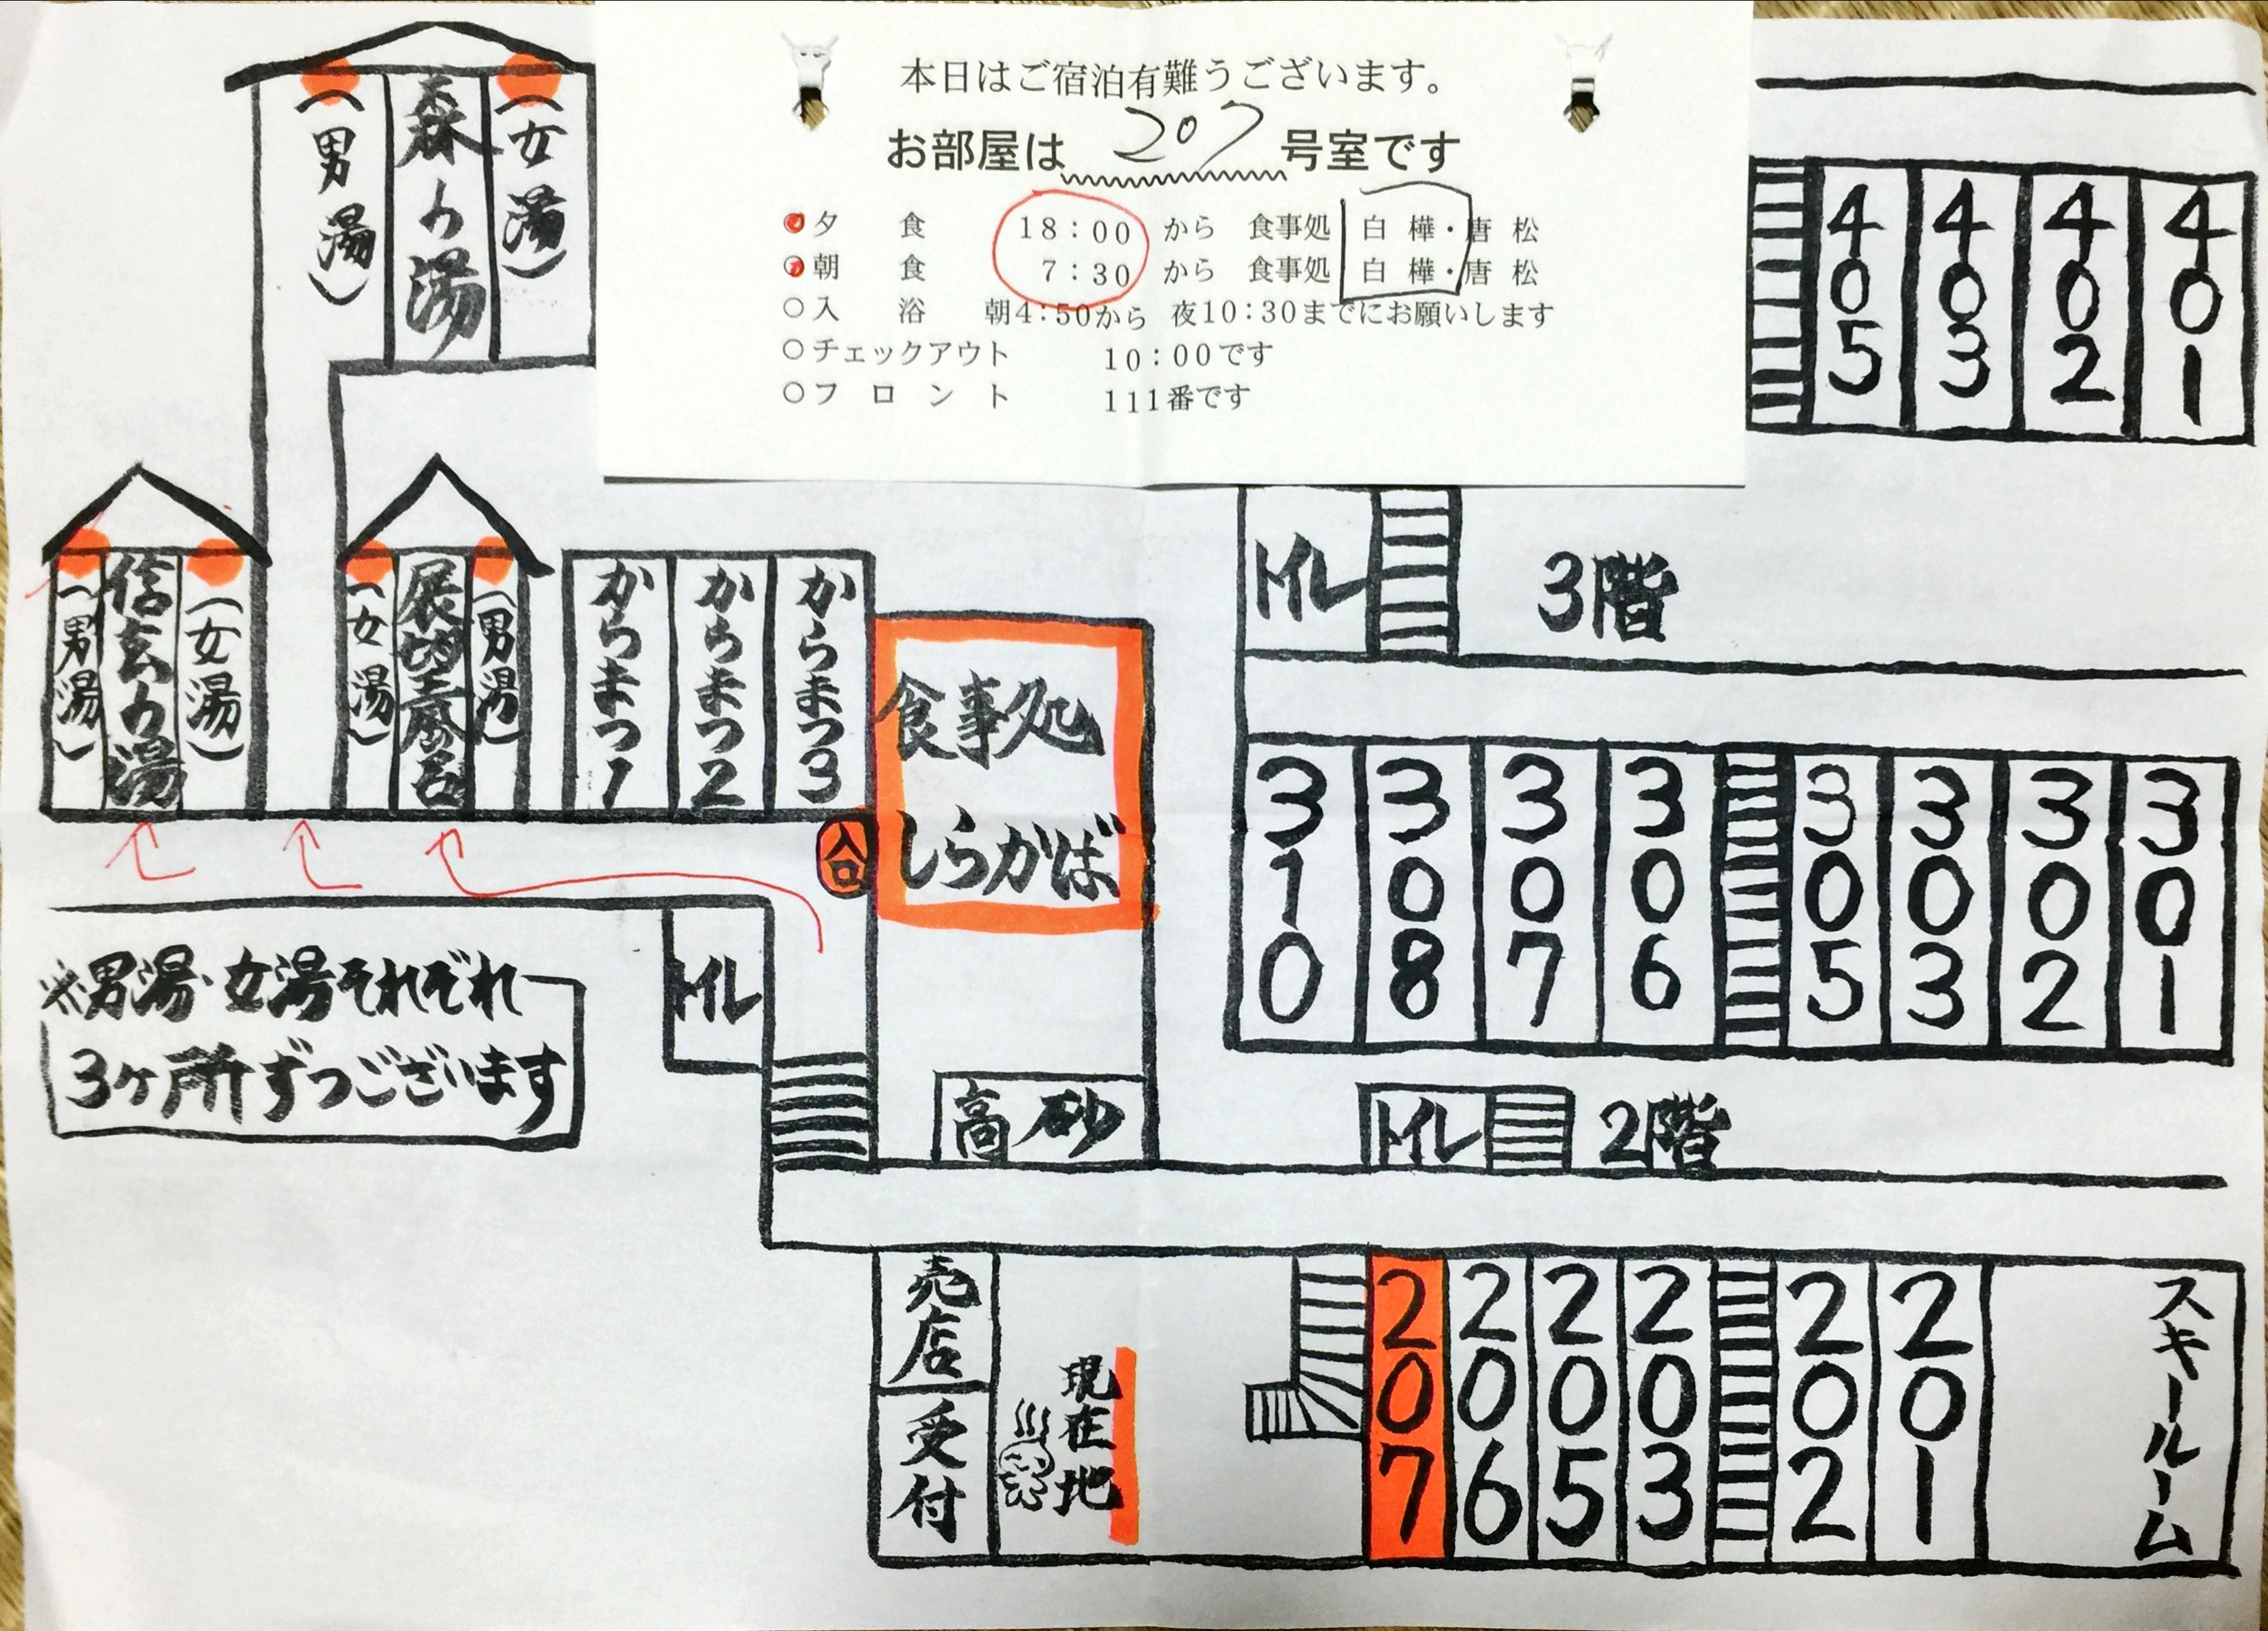 本日はご宿泊有難うございます。
お部屋は 207 号室です
夕食 18:00 から 食事処 白樺・唐松
朝食 7:30 から 食事処 白樺・唐松
○入浴 朝4:50から 夜10:30までにお願いします
○チェックアウト 10:00です
○フロント 111番です
(男湯)
森の湯
(女湯)
405
403
402
401
トイレ
3階
(男湯)
信玄の湯
(女湯)
(女湯)
展望風呂
(男湯)
からまつ1
からまつ2
からまつ3
食事処
しらかば
入口
310
308
307
306
305
303
302
301
※男湯・女湯それぞれ
3ヶ所ずつございます
トイレ
高砂
トイレ
2階
売店
受付
現在地
207
206
205
203
202
201
スキールーム